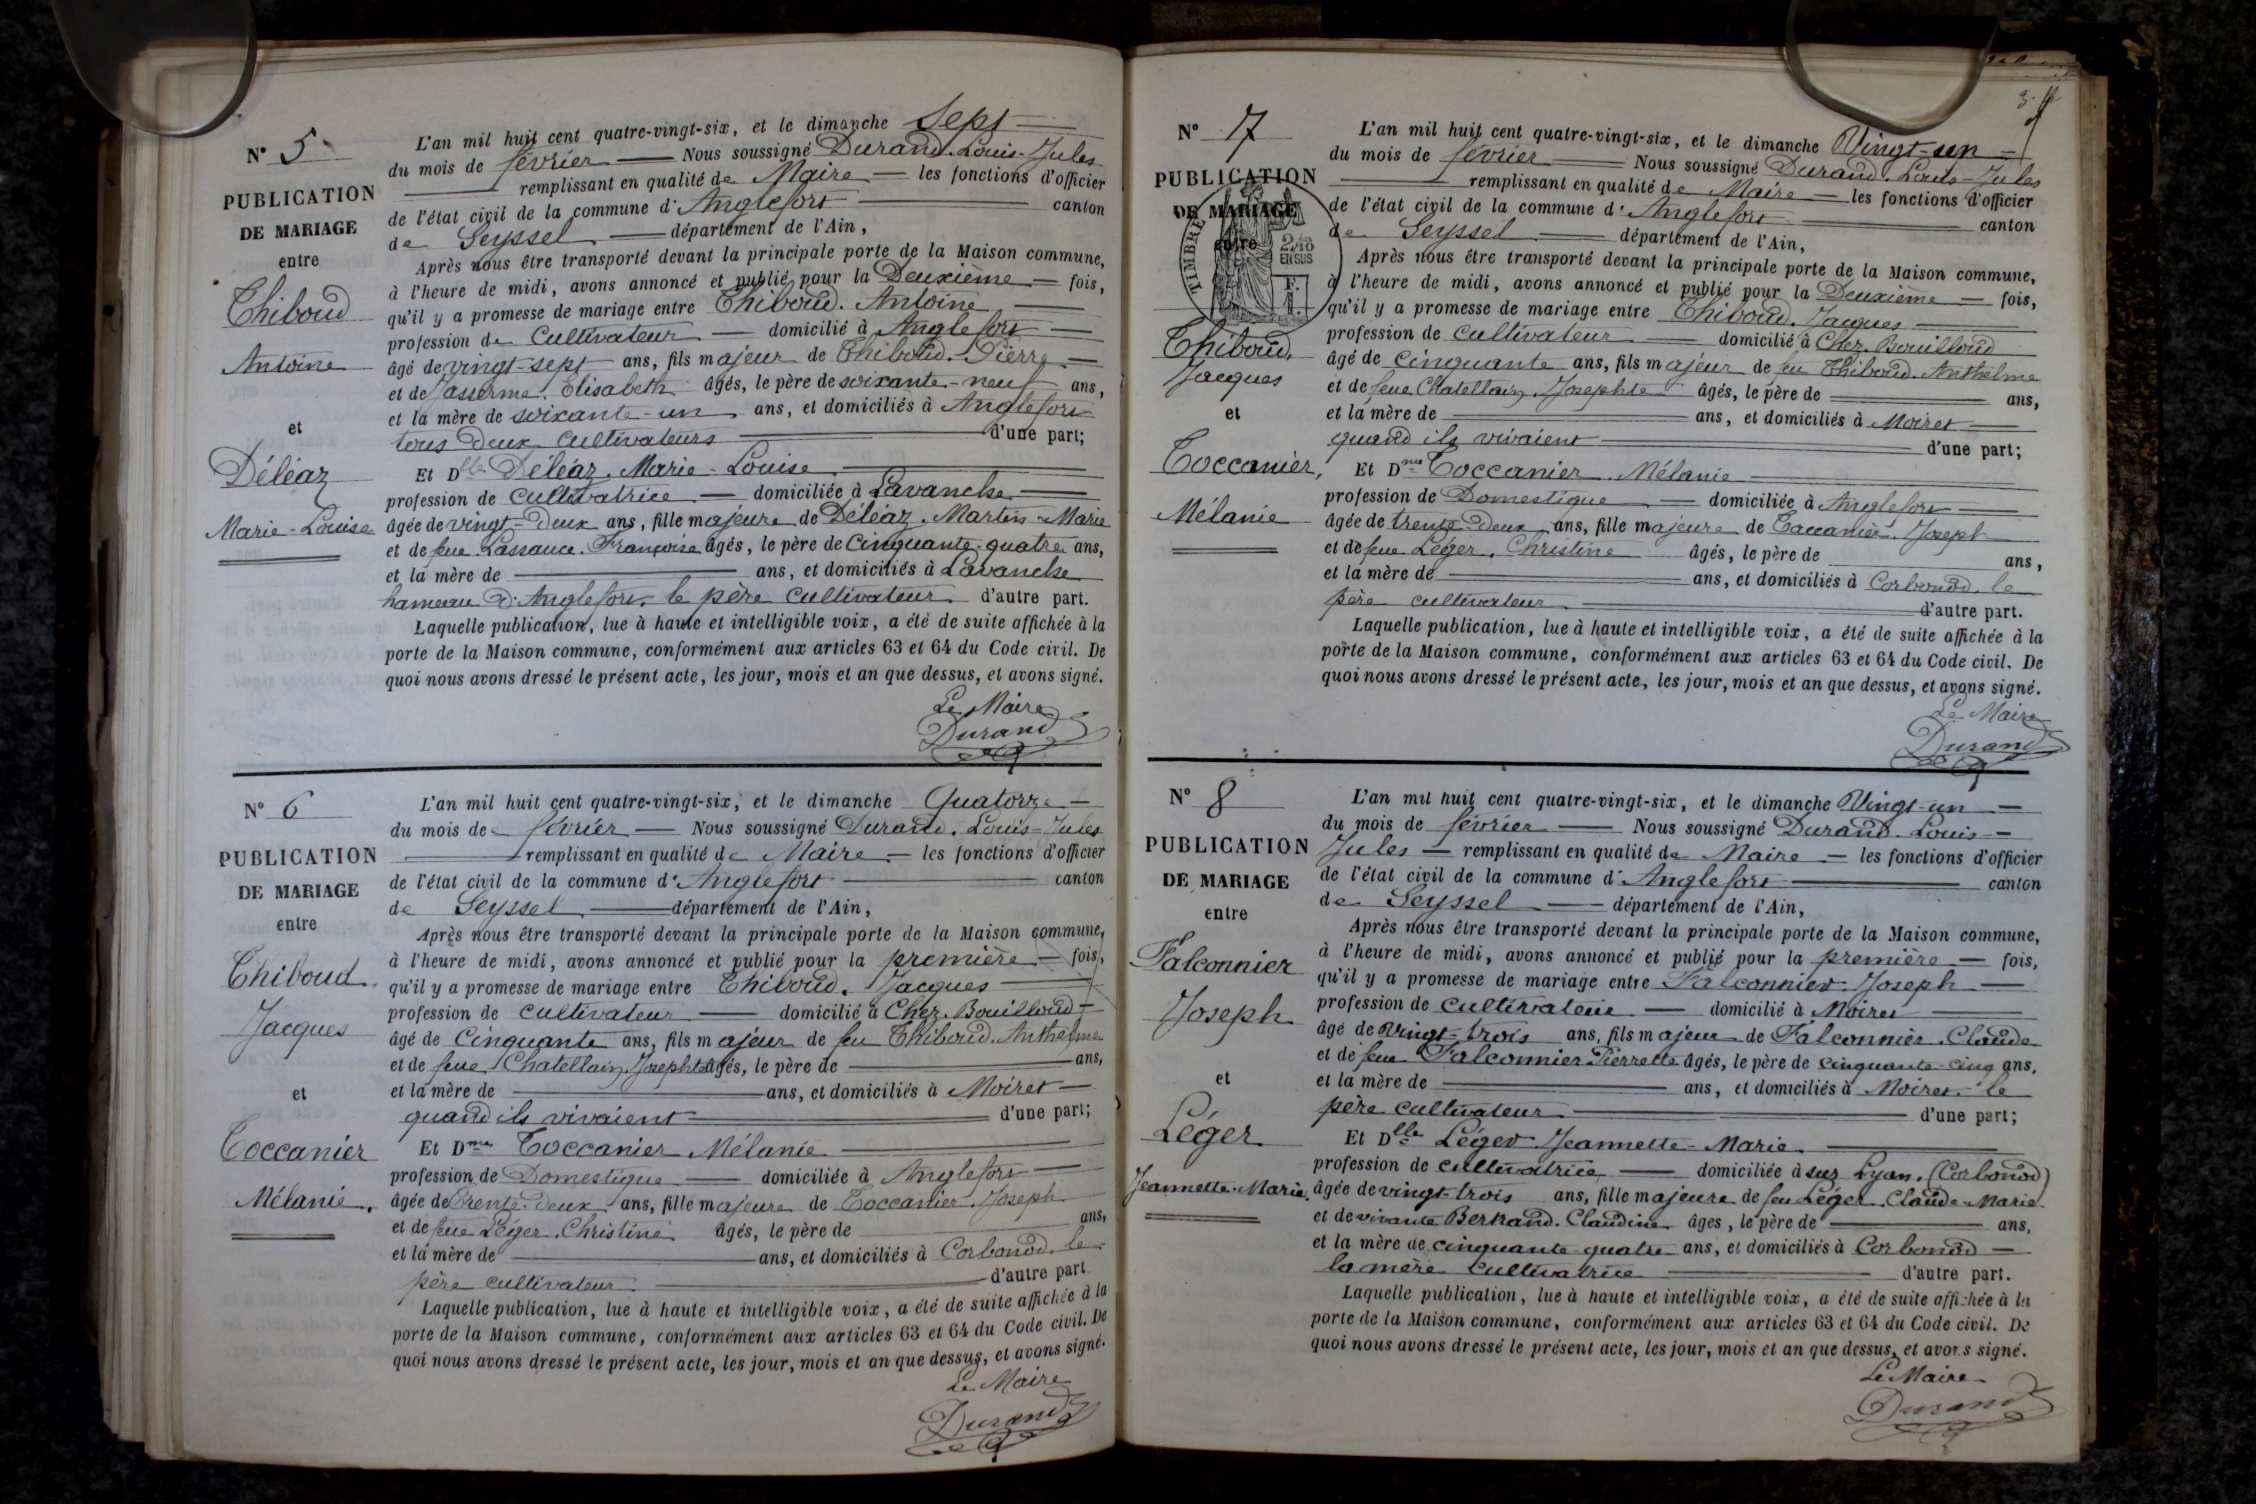 N° 5
PUBLICATION
DE MARIAGE
entre
Thiboud
Antoine
et
Déléaz
Marie-Louise
L'an mil huit cent quatre-vingt-six, et le dimanche Sept
du mois de février Nous soussigné Durand. Louis-Jules
remplissant en qualité de Maire les fonctions d'officier
de l'état civil de la commune d'Anglefort canton
de Seyssel département de l'Ain,
Après nous être transporté devant la principale porte de la Maison commune,
à l'heure de midi, avons annoncé et publié pour la Deuxième fois,
qu'il y a promesse de mariage entre Thiboud. Antoine
profession de Cultivateur domicilié à Anglefort
âgé de vingt-sept ans, fils majeur de Thiboud. Pierre
et de Jasserme. Elisabeth âgés, le père de soixante-neuf ans,
et la mère de soixante-un ans, et domiciliés à Anglefort
tous deux cultivateurs d'une part;
Et Dlle Déléaz. Marie-Louise
profession de cultivatrice domiciliée à Lavanche
âgée de vingt-deux ans, fille majeure de Déléaz. Martin-Marie
et de feue Lassauce. Françoise âgés, le père de Cinquante-quatre ans,
et la mère de ans, et domiciliés à Lavanche
hameau d'Anglefort. le père cultivateur d'autre part.
Laquelle publication, lue à haute et intelligible voix, a été de suite affichée à la
porte de la Maison commune, conformément aux articles 63 et 64 du Code civil. De
quoi nous avons dressé le présent acte, les jour, mois et an que dessus, et avons signé.
Le Maire
Durand
N° 6
PUBLICATION
DE MARIAGE
entre
Thiboud
Jacques
et
Toccanier
Mélanie.
L'an mil huit cent quatre-vingt-six, et le dimanche Quatorze
du mois de février Nous soussigné Durand. Louis-Jules
remplissant en qualité de Maire les fonctions d'officier
de l'état civil de la commune d'Anglefort canton
de Seyssel département de l'Ain,
Après nous être transporté devant la principale porte de la Maison commune,
à l'heure de midi, avons annoncé et publié pour la première fois,
qu'il y a promesse de mariage entre Thiboud. Jacques
profession de cultivateur domicilié à Chez-Bouilloud
âgé de Cinquante ans, fils majeur de feu Thiboud. Anthelme
et de feue Chatellain. Josephte âgés, le père de ans,
et la mère de ans, et domiciliés à Moiret
quand ils vivaient d'une part;
Et Dme Toccanier Mélanie
profession de Domestique domiciliée à Anglefort
âgée de Trente-deux ans, fille majeure de Toccanier. Joseph
et de feue Léger. Christine âgés, le père de ans,
et la mère de ans, et domiciliés à Corbonod. le
père cultivateur d'autre part.
Laquelle publication, lue à haute et intelligible voix, a été de suite affichée à la
porte de la Maison commune, conformément aux articles 63 et 64 du Code civil. De
quoi nous avons dressé le présent acte, les jour, mois et an que dessus, et avons signé.
Le Maire
Durand
N° 7
PUBLICATION
DE MARIAGE
entre
TIMBRE
2/10
EN SUS
F.
1.
Thiboud,
Jacques
et
Toccanier,
Mélanie
L'an mil huit cent quatre-vingt-six, et le dimanche Vingt-un
du mois de février Nous soussigné Durand. Louis-Jules
remplissant en qualité de Maire les fonctions d'officier
de l'état civil de la commune d'Anglefort canton
de Seyssel département de l'Ain,
Après nous être transporté devant la principale porte de la Maison commune,
à l'heure de midi, avons annoncé et publié pour la Deuxième fois,
qu'il y a promesse de mariage entre Thiboud. Jacques
profession de cultivateur domicilié à Chez-Bouilloud
âgé de cinquante ans, fils majeur de feu Thiboud. Anthelme
et de feue Chatellain. Josephte âgés, le père de ans,
et la mère de ans, et domiciliés à Moiret
quand ils vivaient d'une part;
Et Dme Toccanier. Mélanie
profession de Domestique domiciliée à Anglefort
âgée de trente-deux ans, fille majeure de Toccanier. Joseph
et de feue Léger. Christine âgés, le père de ans,
et la mère de ans, et domiciliés à Corbonod. le
père cultivateur d'autre part.
Laquelle publication, lue à haute et intelligible voix, a été de suite affichée à la
porte de la Maison commune, conformément aux articles 63 et 64 du Code civil. De
quoi nous avons dressé le présent acte, les jour, mois et an que dessus, et avons signé.
Le Maire
Durand
N° 8
PUBLICATION
DE MARIAGE
entre
Falconnier
Joseph
et
Léger
Jeannette-Marie.
L'an mil huit cent quatre-vingt-six, et le dimanche Vingt-un
du mois de février Nous soussigné Durand. Louis-
Jules remplissant en qualité de Maire les fonctions d'officier
de l'état civil de la commune d'Anglefort canton
de Seyssel département de l'Ain,
Après nous être transporté devant la principale porte de la Maison commune,
à l'heure de midi, avons annoncé et publié pour la première fois,
qu'il y a promesse de mariage entre Falconnier. Joseph
profession de cultivateur domicilié à Moiret
âgé de Vingt-trois ans, fils majeur de Falconnier. Claude
et de feue Falconnier Pierrette âgés, le père de cinquante-cinq ans,
et la mère de ans, et domiciliés à Moiret. le
père cultivateur d'une part;
Et Dlle Léger Jeannette-Marie
profession de cultivatrice domiciliée à sur Lyan. (Corbonod)
âgée de vingt-trois ans, fille majeure de feu Léger. Claude-Marie
et de vivante Bertrand. Claudine âgés, le père de ans,
et la mère de cinquante quatre ans, et domiciliés à Corbonod
la mère cultivatrice d'autre part.
Laquelle publication, lue à haute et intelligible voix, a été de suite affichée à la
porte de la Maison commune, conformément aux articles 63 et 64 du Code civil. De
quoi nous avons dressé le présent acte, les jour, mois et an que dessus, et avons signé.
Le Maire
Durand